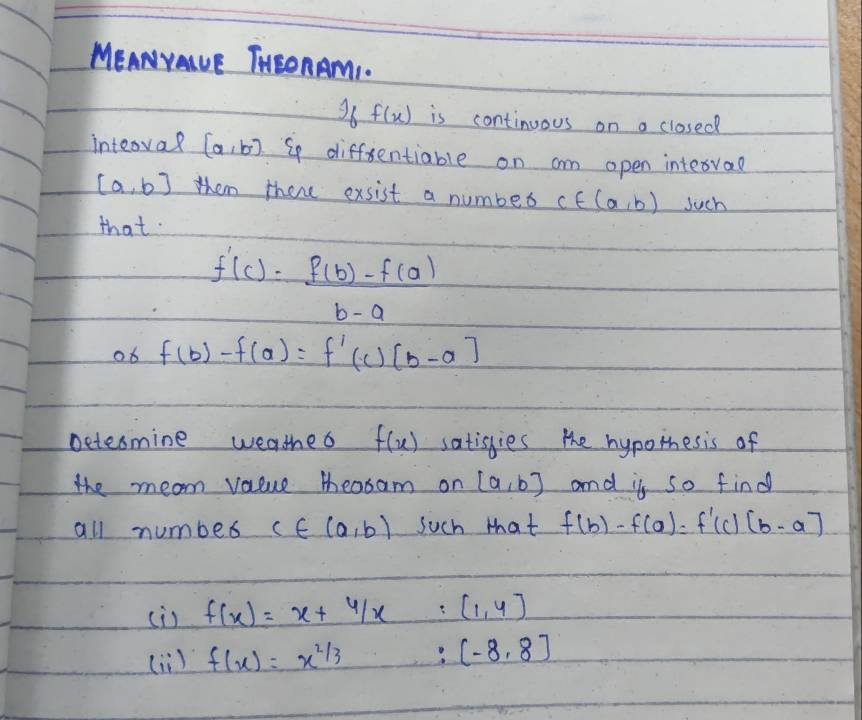 MEANVALUE THEORAM:.
If f(x) is continuous on a closed
interval [a,b] & diffrentiable on an open interval
[a,b] then there exsist a number c∈(a,b) such
that.
f'(c) = f(b) - f(a)
b - a
or f(b) - f(a) = f'(c) [b - a]
Determine weather f(x) satisfies the hypothesis of
the mean value theoram on [a,b] and if so find
all number c ∈ (a,b) such that f(b) - f(a) = f'(c) [b - a]
(i) f(x) = x + 4/x : [1,4]
(ii) f(x) = x^2/3 : [-8,8]